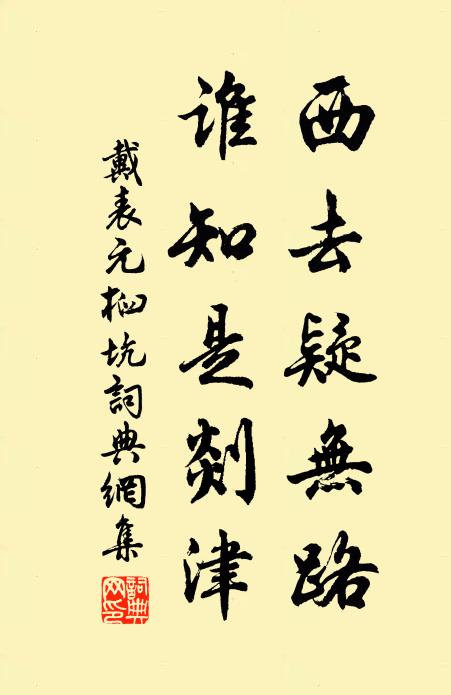 西去疑無路
谁知是剡津
戴表元 坑詞典網集
詞典网印